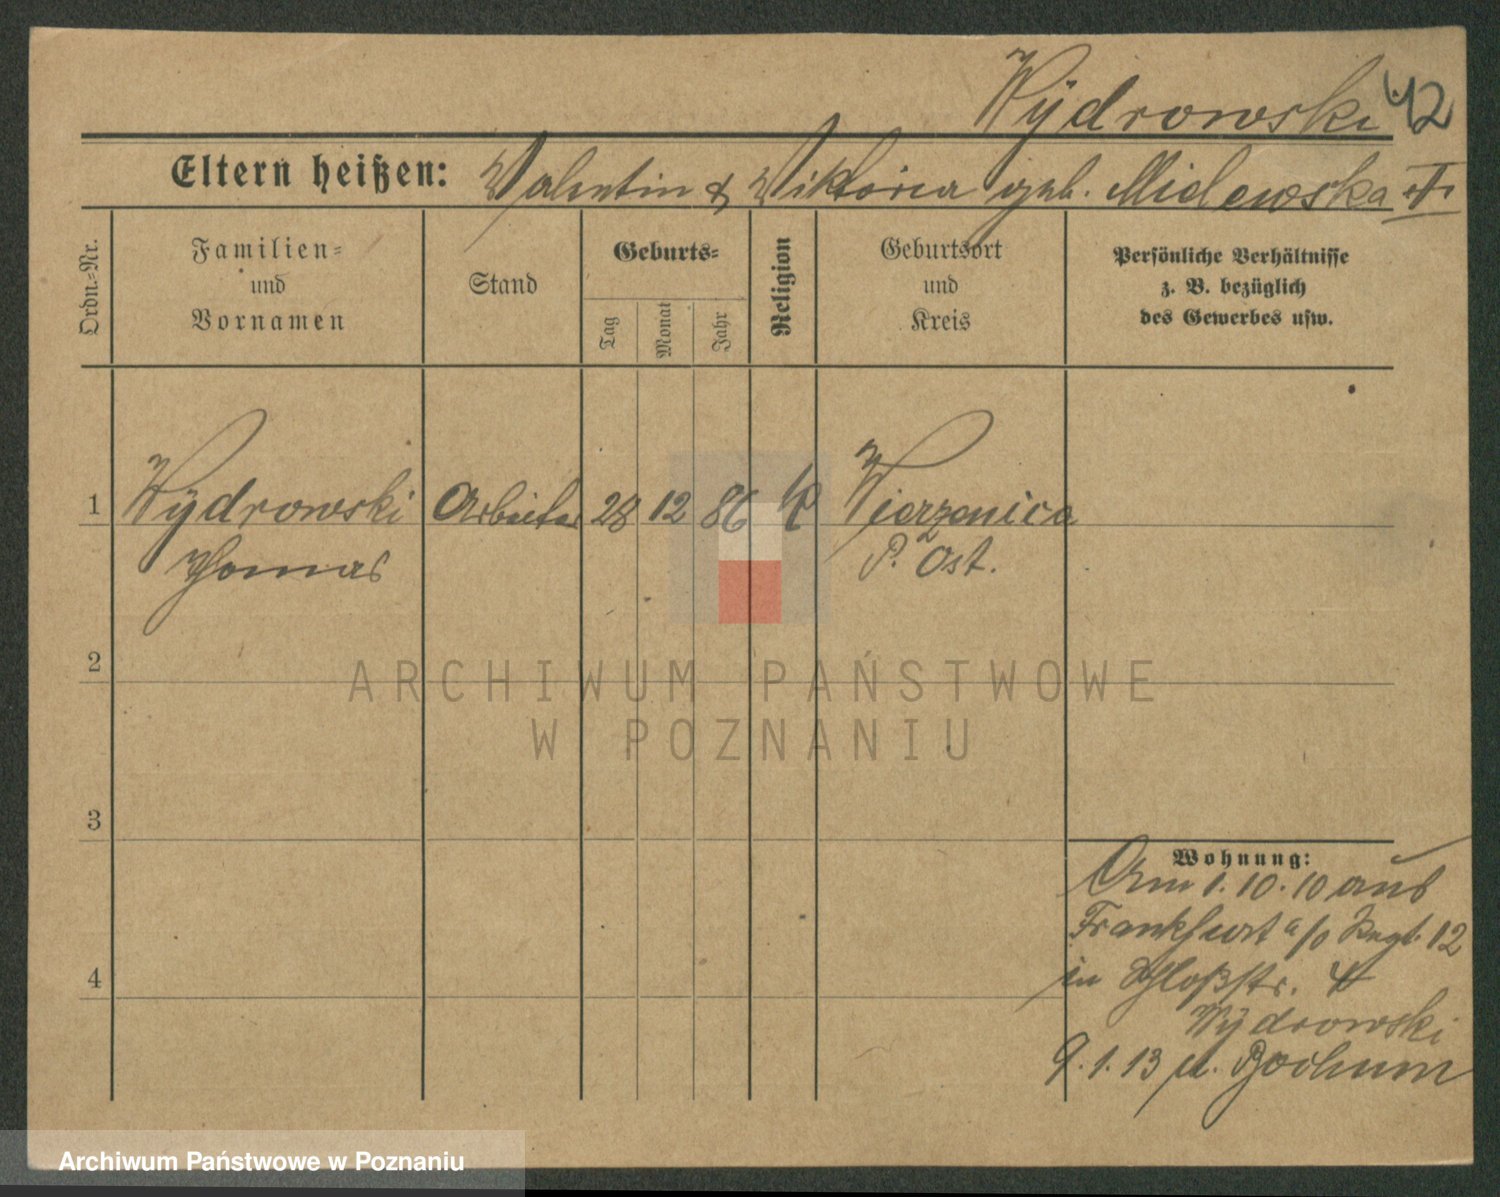 Wÿdrowski 42
Eltern heißen: Valentin & Viktoria geb. Milewska
Ordn.-Nr.
Familien-
und
Vornamen
Stand
Geburts-
Tag
Monat
Jahr
Religion
Geburtsort
und
Kreis
Persönliche Verhältnisse
z. B. bezüglich
des Gewerbes usw.
1 Wÿdrowski Arbeiter 28 12 86 k Wierzenica
Thomas P. Ost.
2
ARCHIWUM PAŃSTWOWE
W POZNANIU
3
Wohnung:
Am 1. 10. 10 aus
Frankfurt a/o Regt. 12
in Schloßstr. 4
4
Wÿdrowski
9. 1. 13 n. Bochum
Archiwum Państwowe w Poznaniu